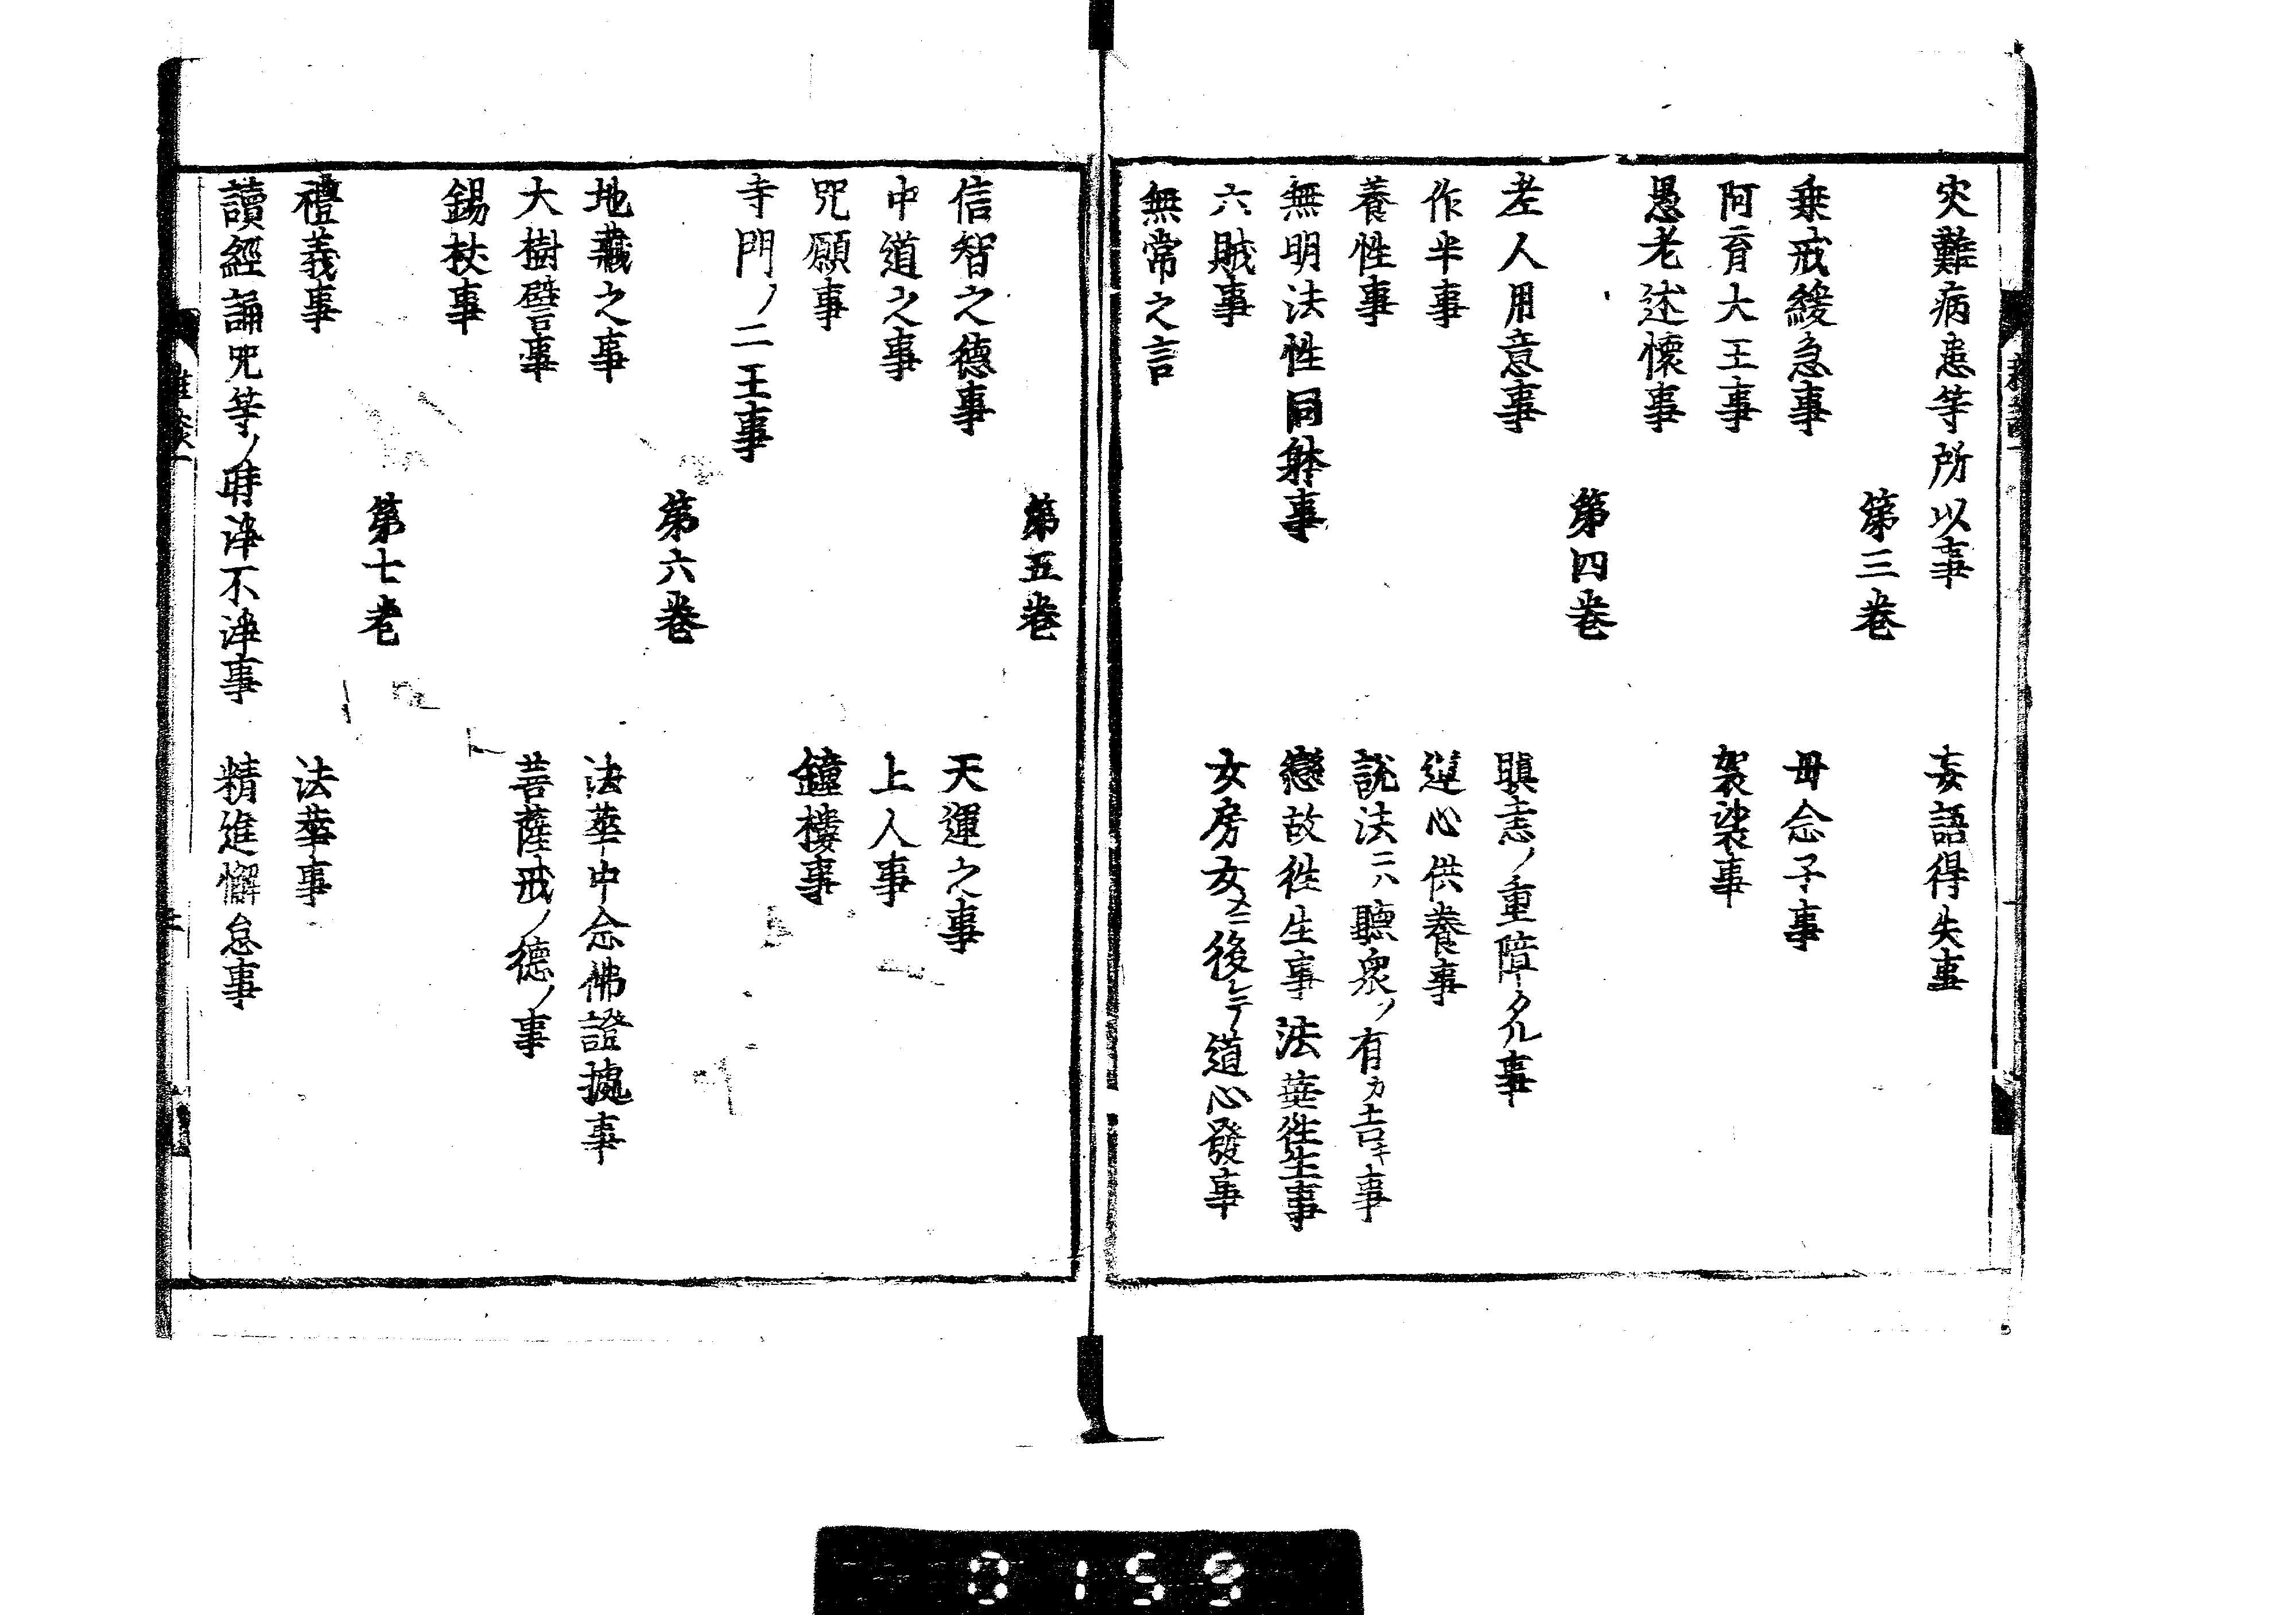 災難病患等所以事　妄語得失事
第三巻
乗戒緩急事　母念子事
阿育大王事　袈裟事
愚老述懐事
第四巻
老人用意事　瞋恚ノ重障タル事
作半事　逆心供養事
養性事　説法ニハ聽衆ノ有カ吉キ事
無明法性同躰事　戀故徃生事　法華徃生事
六賊事　女房女ニ後レテ道心發事
無常之言
第五巻
信智之德事　天運之事
中道之事　上人事
咒願事　鐘樓事
寺門ノ二王事
第六巻
地藏之事　法華中念佛證據事
大樹譬事　菩薩戒ノ德ノ事
錫杖事
第七巻
禮義事　法華事
讀經誦咒等ノ時淨不淨事　精進懈怠事
雜談一
0159